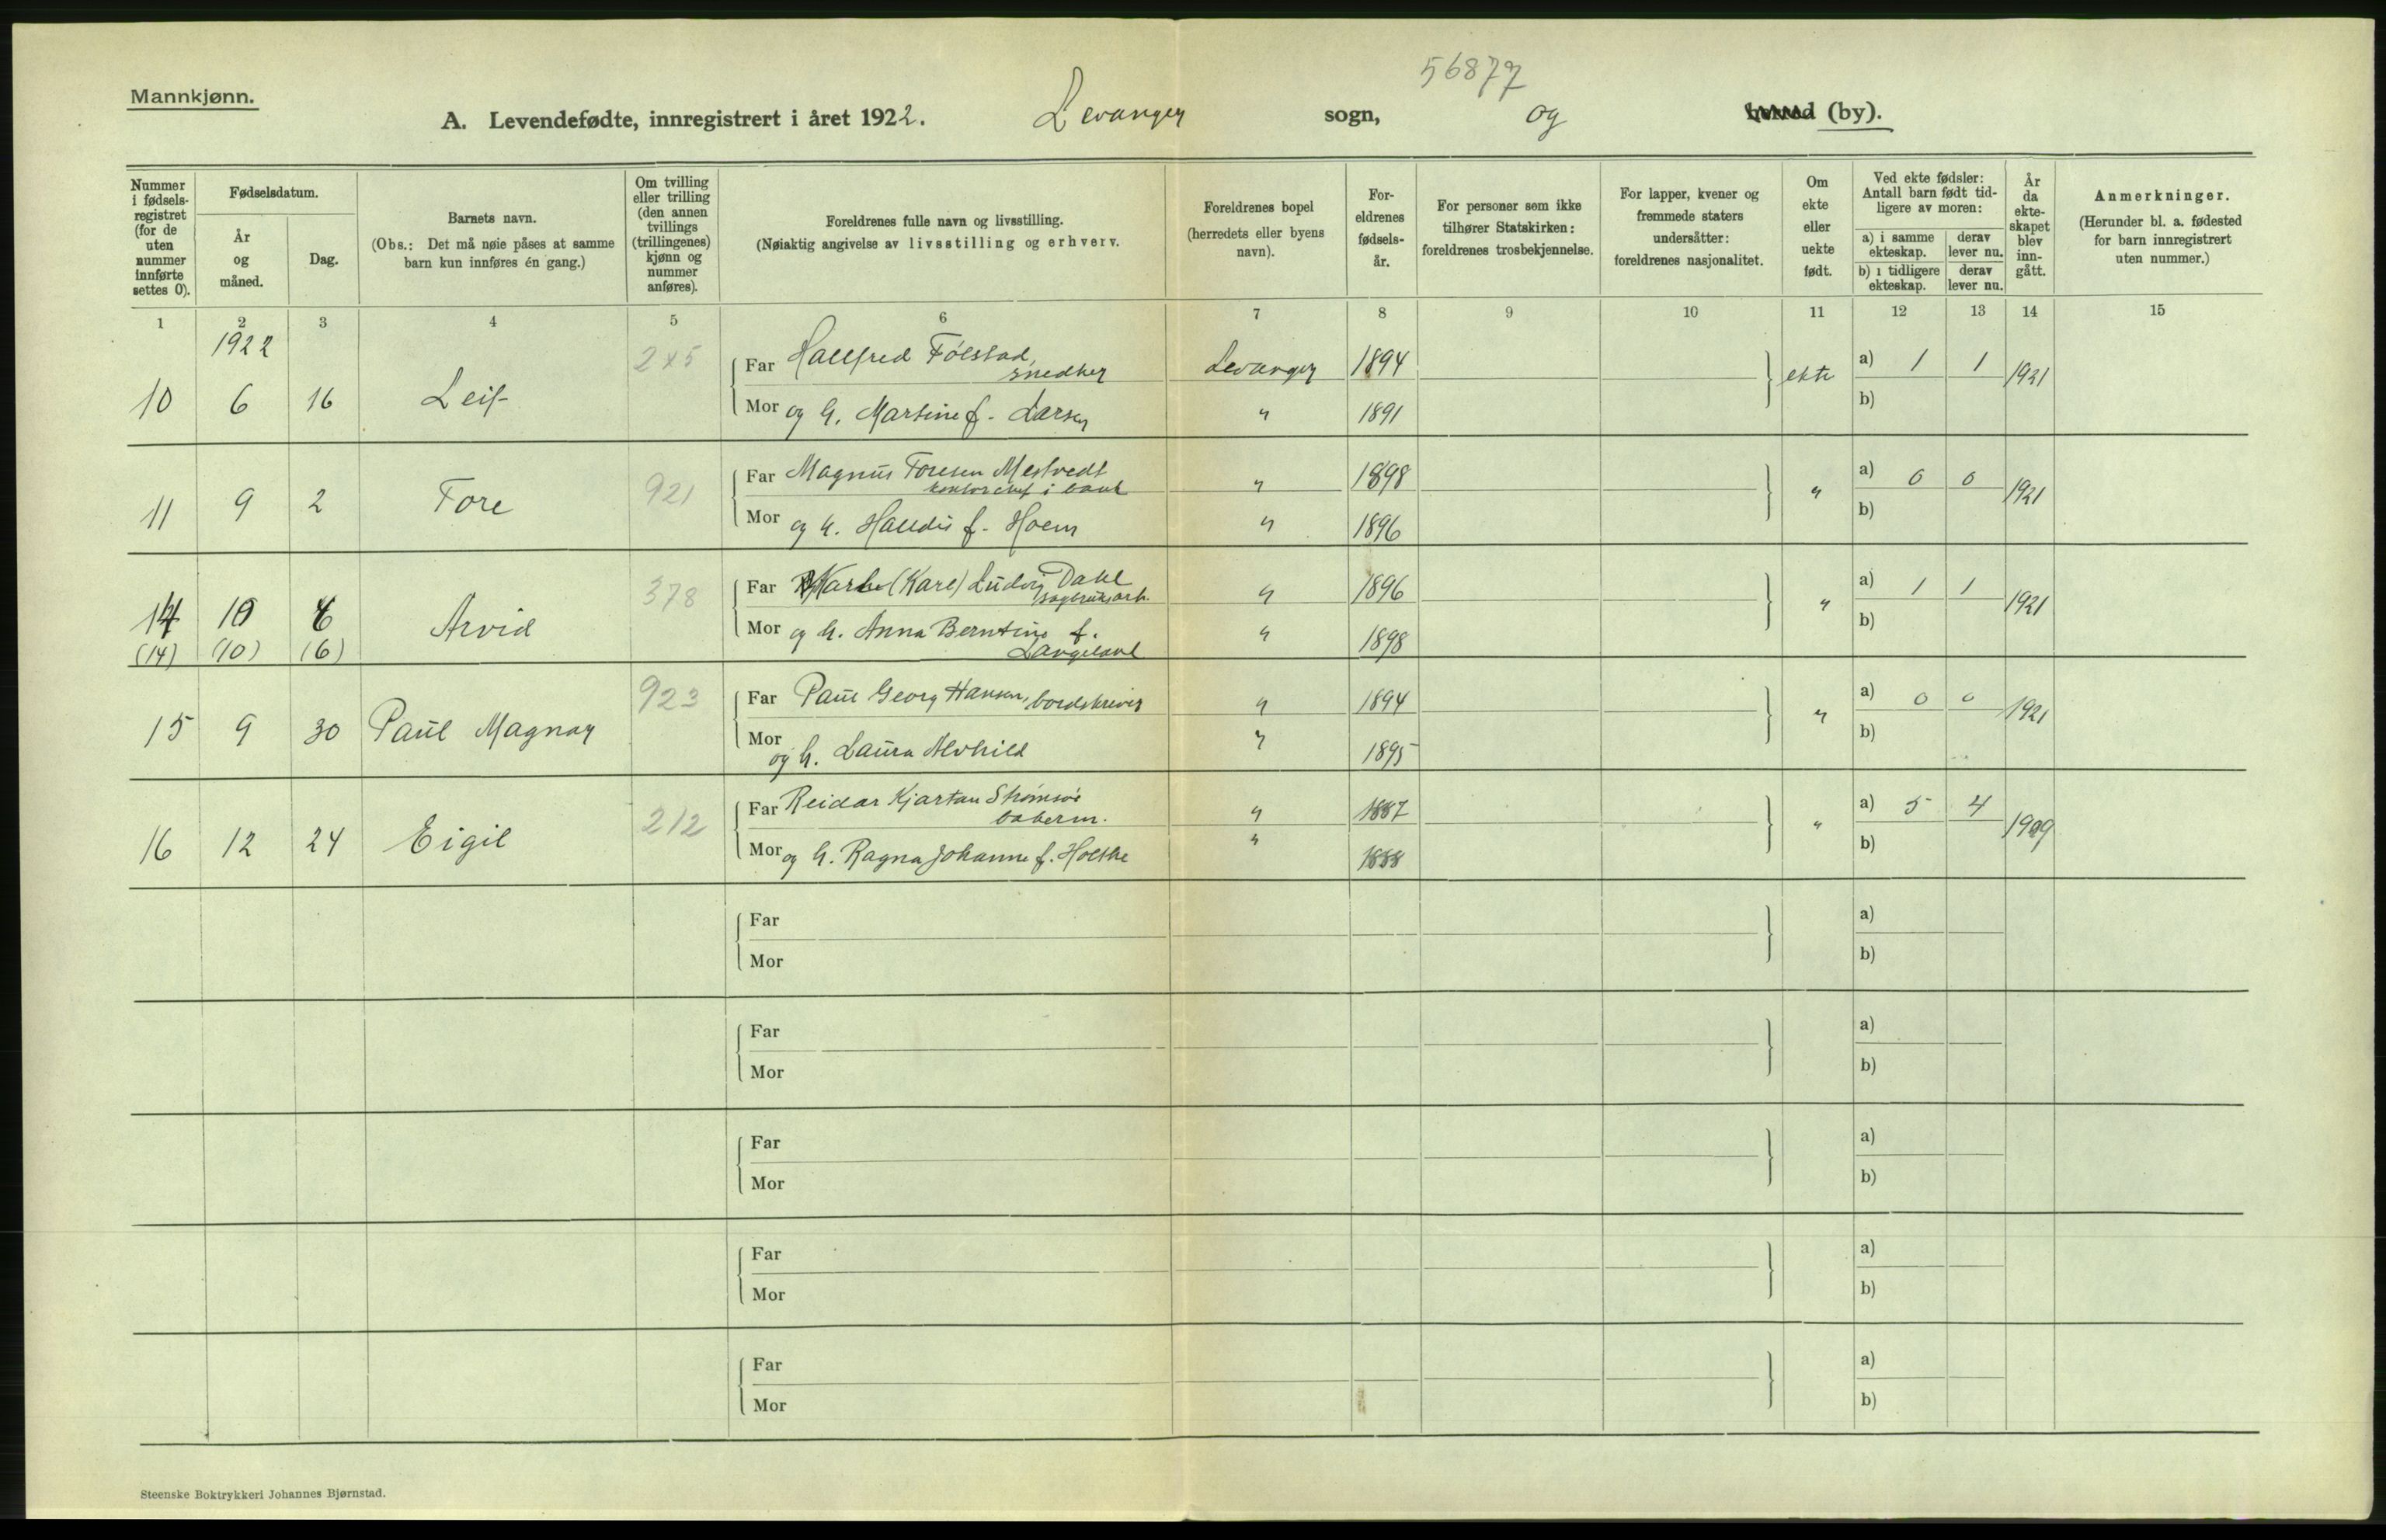 56877
Mannkjønn.
A. Levendefødte, innregistrert i året 1922. Levanger sogn, og herred (by).
Nummer i fødsels-registret (for de uten nummer innførte settes 0).
Fødselsdatum.
År og måned.
Dag.
Barnets navn.
(Obs.: Det må nøie påses at samme barn kun innføres én gang.)
Om tvilling eller trilling (den annen tvillings (trillingenes) kjønn og nummer anføres).
Foreldrenes fulle navn og livsstilling.
(Nøiaktig angivelse av livsstilling og erhverv.
Foreldrenes bopel (herredets eller byens navn).
For-eldrenes fødsels-år.
For personer som ikke tilhører Statskirken: foreldrenes trosbekjennelse.
For lapper, kvener og fremmede staters undersåtter: foreldrenes nasjonalitet.
Om ekte eller uekte født.
Ved ekte fødsler: Antall barn født tid-ligere av moren:
a) i samme ekteskap.
derav lever nu.
b) i tidligere ekteskap.
derav lever nu.
År da ekte-skapet blev inn-gått.
Anmerkninger.
(Herunder bl. a. fødested for barn innregistrert uten nummer.)
1 2 3 4 5 6 7 8 9 10 11 12 13 14 15
1922
10 6 16 Leif 245
Far Hallfred Følstad, snedker Levanger 1894 ekte a) 1 1 1921
Mor og h. Martine f. Larsen " 1891 b)
11 9 2 Tore 921
Far Magnus Toresen Mestvedt kontorchef i bank " 1898 " a) 0 0 1921
Mor og h. Halldis f. Hoem " 1896 b)
14 10 6 Arvid 378
(14) (10) (6)
Far (Karl) Ludvig Dahl sagbruksarb. " 1896 " a) 1 1 1921
Mor og h. Anna Berntine f. Langeland " 1898 b)
15 9 30 Paul Magnar 923
Far Paul Georg Hansen, bordskriver " 1894 " a) 0 0 1921
Mor og h. Laura Alvhild " 1895 b)
16 12 24 Eigil 212
Far Reidar Kjartan Strømsøe bakerm. " 1887 " a) 5 4 1909
Mor og h. Ragna Johanne f. Holske " 1888 b)
Far a)
Mor b)
Far a)
Mor b)
Far a)
Mor b)
Far a)
Mor b)
Far a)
Mor b)
Steenske Boktrykkeri Johannes Bjørnstad.